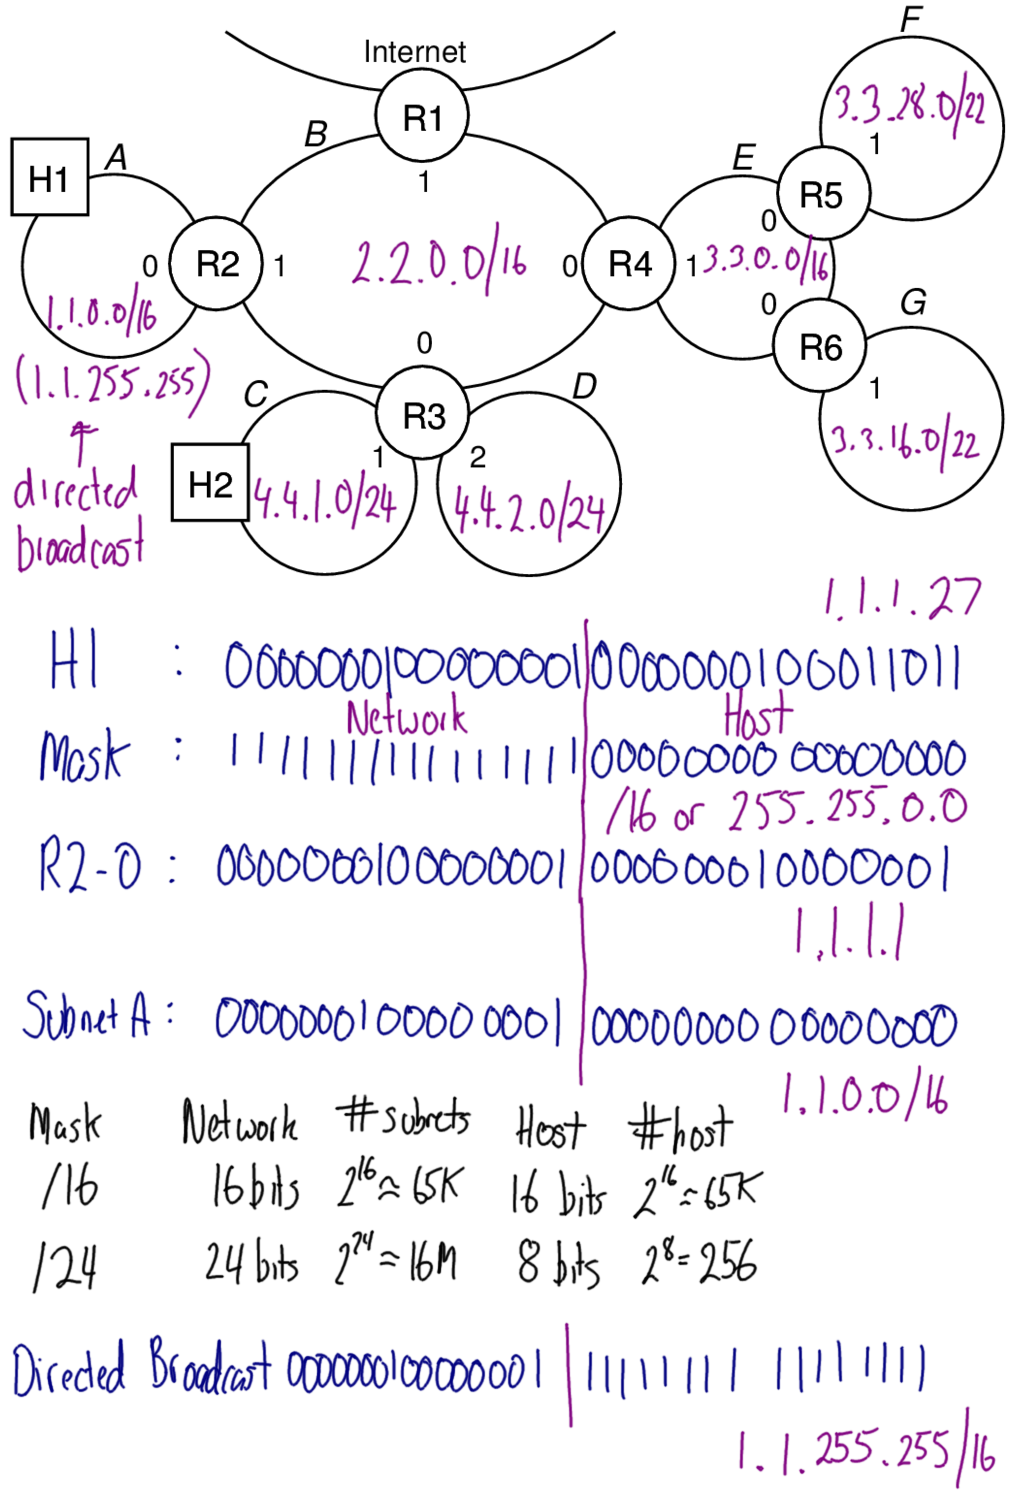 F
Internet
3.3.28.0/22
R1
B
1
H1
A
E
R5
1
0
0
R2
1
2.2.0.0/16
0
R4
1
3.3.0.0/16
1.1.0.0/16
0
G
R6
(1.1.255.255)
0
C
D
1
R3
3.3.16.0/22
1
2
directed
H2
4.4.1.0/24
4.4.2.0/24
broadcast
1.1.1.27
H1 : 0000000100000001 0000000100011011
Network Host
Mask : 1111111111111111 00000000 00000000
/16 or 255.255.0.0
R2-0 : 0000000100000001 0000000100000001
1.1.1.1
Subnet A: 0000000100000001 00000000 00000000
1.1.0.0/16
Mask Network #subnets Host #host
/16 16 bits 2^16≈65K 16 bits 2^16≈65K
/24 24 bits 2^24≈16M 8 bits 2^8=256
Directed Broadcast 0000000100000001 11111111 11111111
1.1.255.255/16